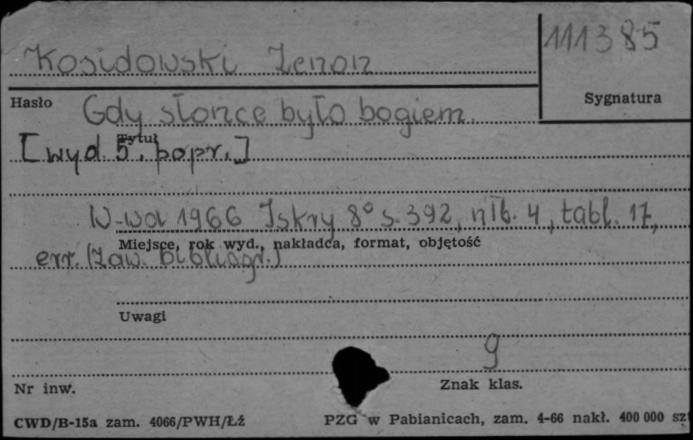 111385
Kosidowski Zenon
Hasło
Sygnatura
Gdy słońce było bogiem.
Tytuł
[wyd. 5. popr.]
W-wa 1966 Iskry 8° s. 392, nlb. 4, tabl. 17,
Miejsce, rok wyd., nakładca, format, objętość
err. (zaw. bibliogr.)
Uwagi
9
Nr inw.
Znak klas.
CWD/B-15a zam. 4066/PWH/Łź
PZG w Pabianicach, zam. 4-66 nakł. 400 000 szt